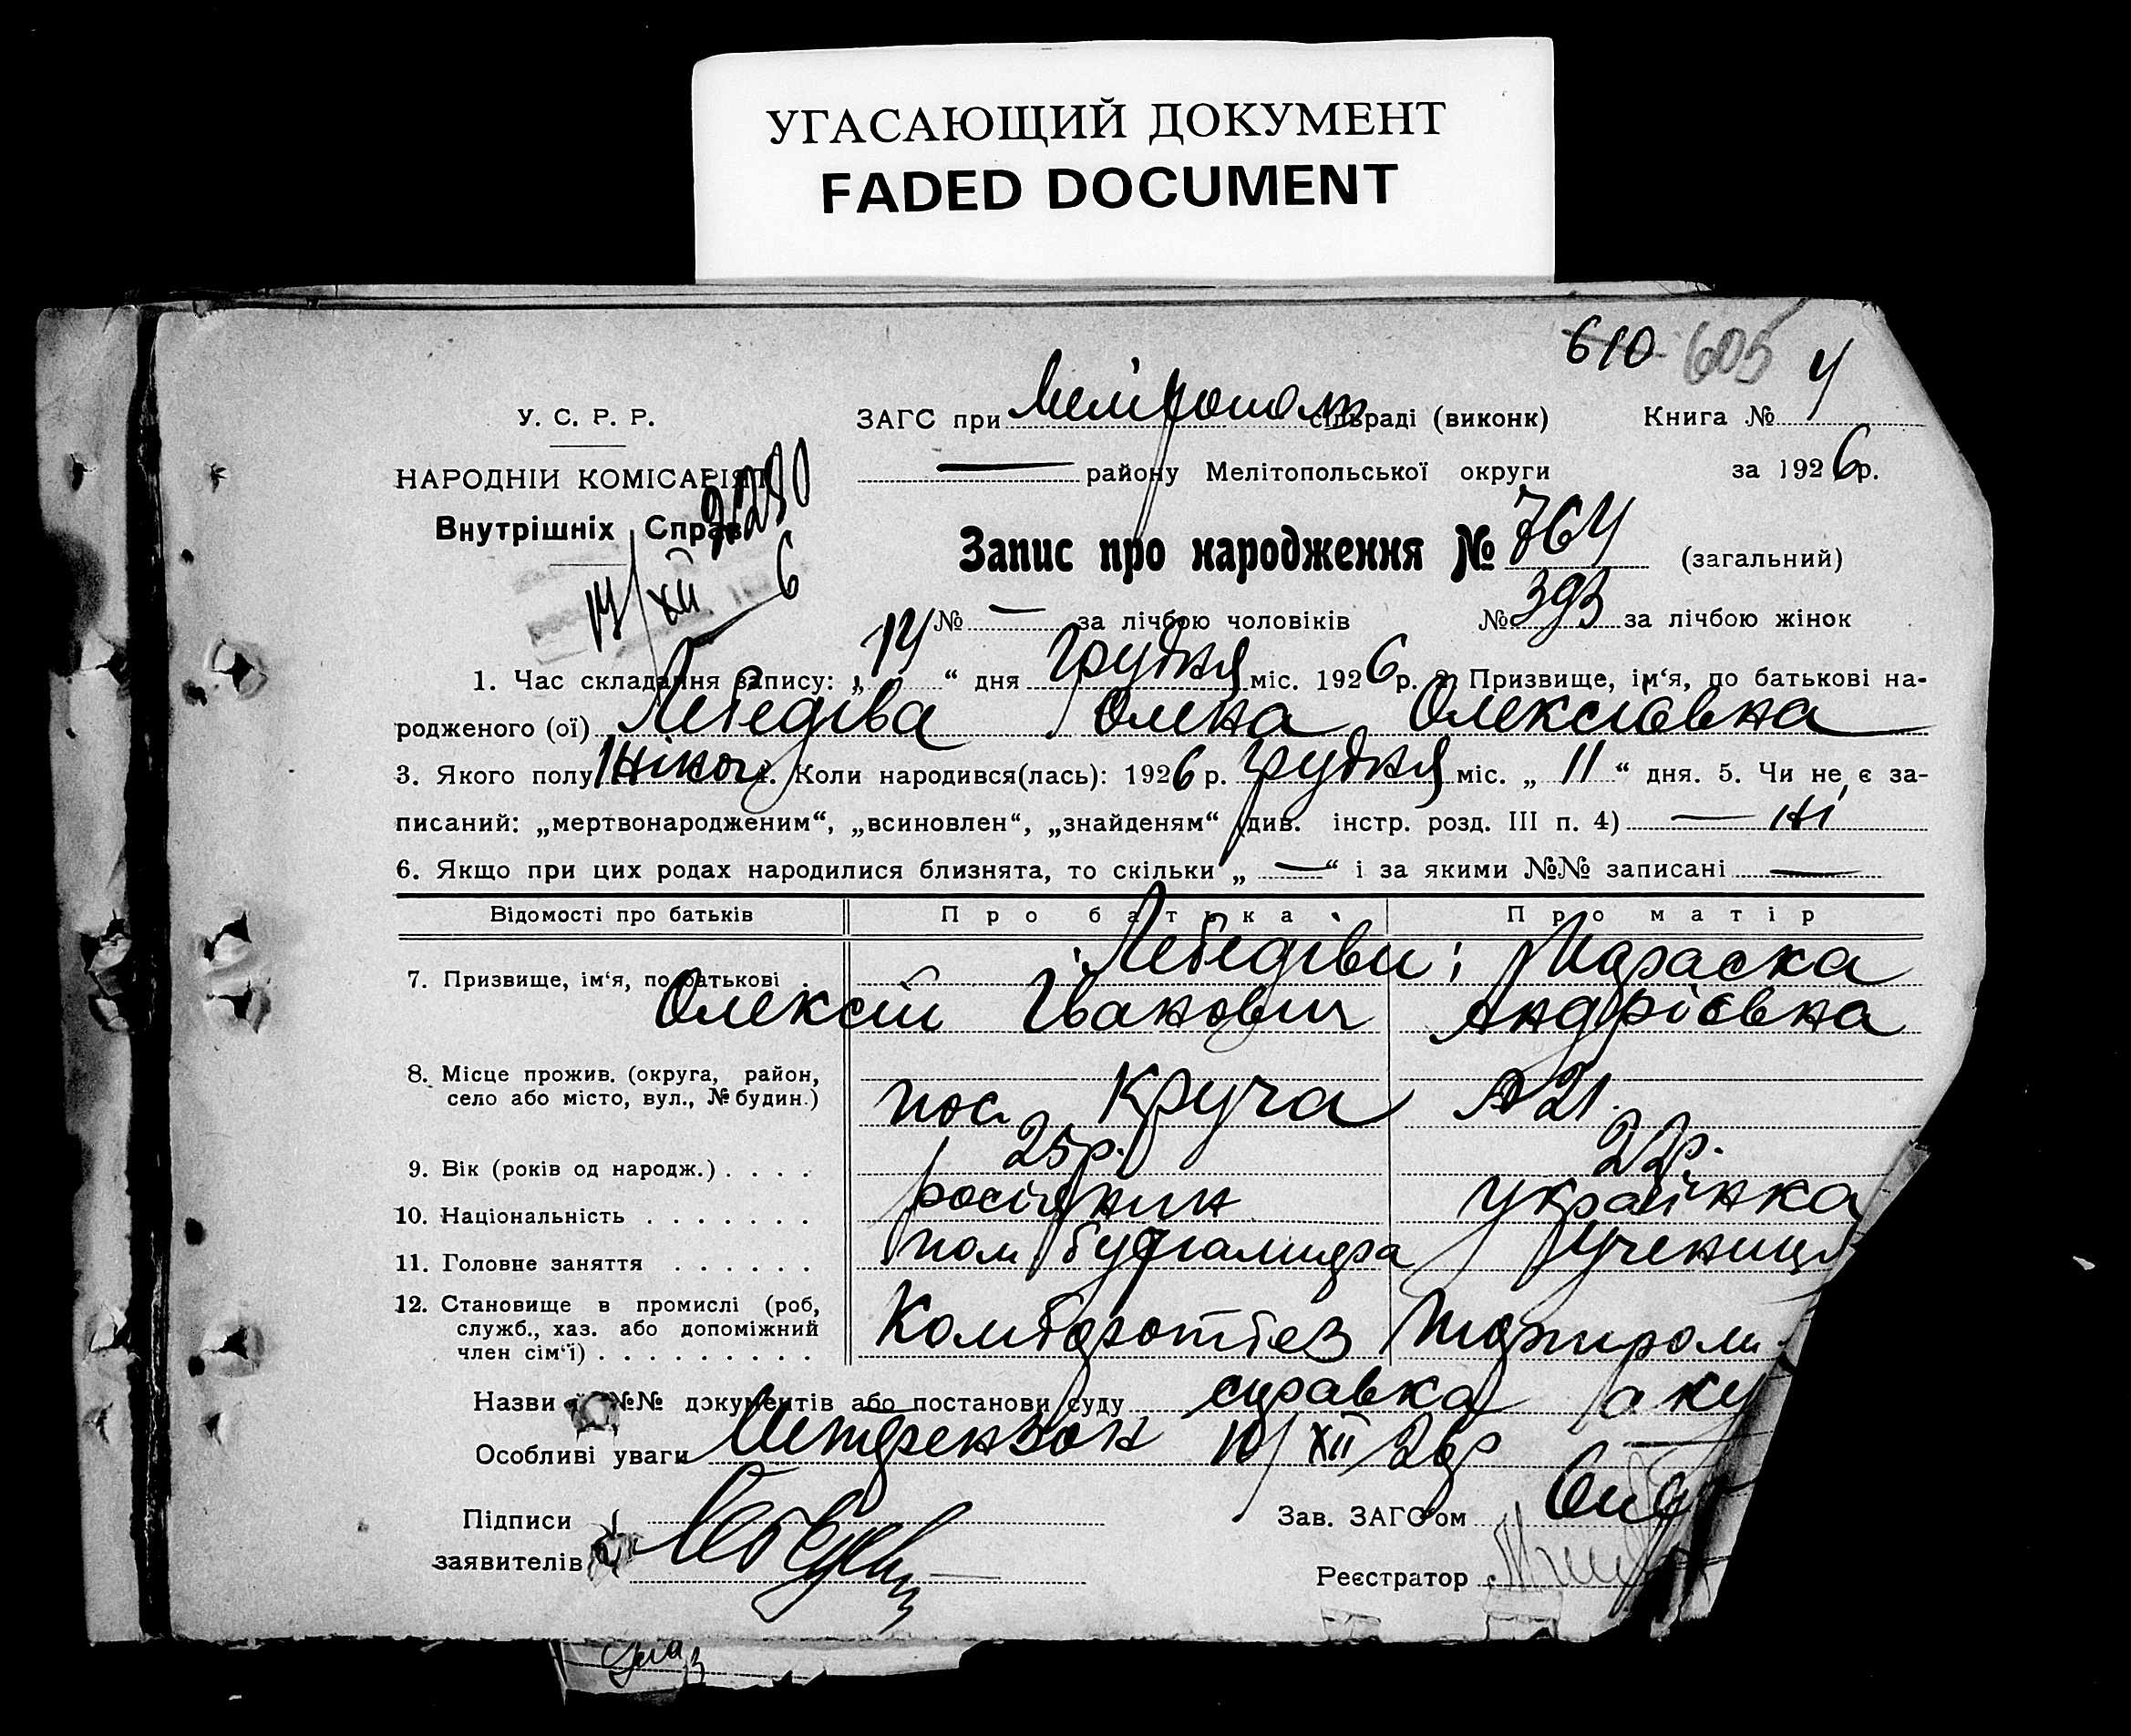 УГАСАЮЩИЙ ДОКУМЕНТ
FADED DOCUMENT
610 605
У. С. Р. Р.
ЗАГС при Мелітополь сільраді (виконк) Книга № 4
НАРОДНІЙ КОМІСАРІЯТ
— району Мелітопольської округи за 1926 р.
Внутрішніх Справ
14/XII 6
Запис про народження № 764 (загальний)
№ — за лічбою чоловіків № 393 за лічбою жінок
1. Час складання запису: „14“ дня Грудня міс. 1926 р. 2. Призвище, ім‘я, по батькові на-
родженого (ої) Лебедіва Олена Олексіівна
3. Якого полу Жіноч. 4. Коли народився(лась): 1926 р. Грудня міс. „11“ дня. 5. Чи не є за-
писаний: „мертвонародженим“, „всиновлен“, „знайденям“ (див. інстр. розд. III п. 4) — ні
6. Якщо при цих родах народилися близнята, то скільки „—“ і за якими №№ записані —
Відомості про батьків Про батька Про матір
7. Призвище, ім‘я, по батькові Лебедіви; Параска
Олексій Іванович Андріївна
8. Місце прожив. (округа, район,
село або місто, вул., № будин.) пос. Круча 21.
9. Вік (років од народж.) . . . . 25р. 22р.
10. Національність . . . . . . . росіянин українка
11. Головне заняття . . . . . . пом бухгалтера Учениця
12. Становище в промислі (роб,
служб., хаз. або допоміжний
член сім‘ї) . . . . . . . . .
Назви й №№ документів або постанови суду справка аку
Особливі уваги 10/XII 26р
Підписи
заявителів
Зав. ЗАГС‘ом
Реєстратор